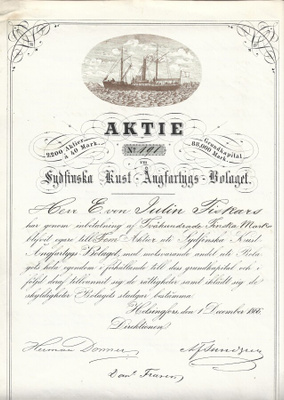 AKTIE
2200 Aktier
à 40 Mark.
No 191
Grundkapital
88,000 Mark.
uti
Sydfinska Kust-Ångfartygs-Bolaget.
Herr E. von Julin Fiskars
har genom inbetalning af Tvåhundrade Finska Mark
blifvit egare till Fem Aktier uti Sydfinska Kust-
Ångfartygs Bolaget, med motsvarande andel uti Bola-
gets hela egendom i förhållande till dess grundkapital och i
följd deraf tillkommit sig de rättigheter samt iklädt sig de
skyldigheter Bolagets stadgar bestämma.
Helsingfors, den 1 December 1866.
Direktionen:
Herman Donner